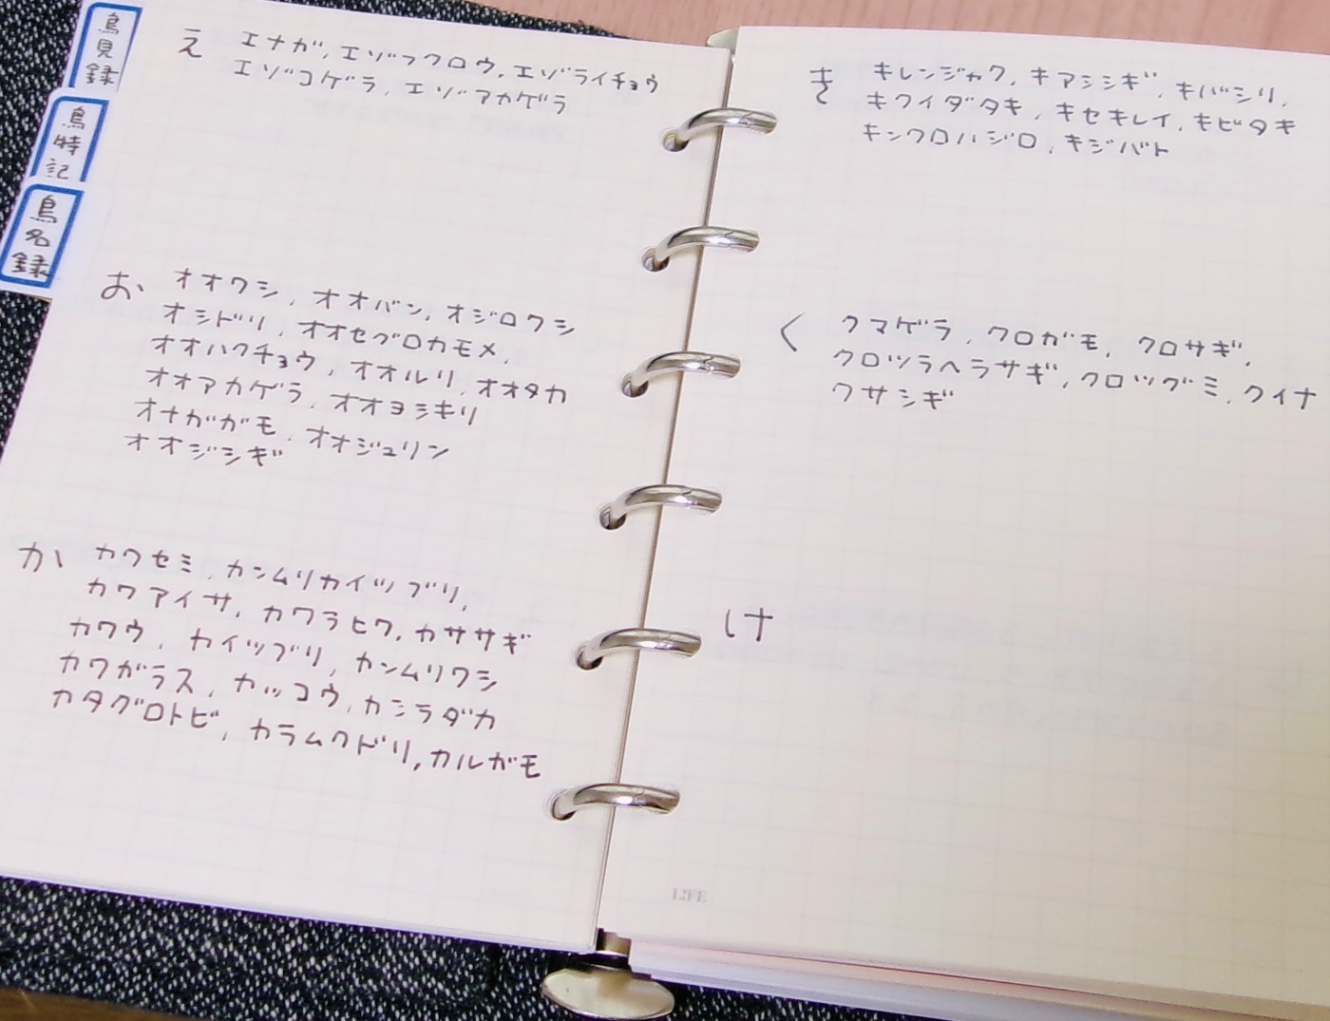 鳥見録
鳥特記
鳥名録
え エナガ, エゾフクロウ, エゾライチョウ
エゾコゲラ, エゾアカゲラ
お オオワシ, オオバン, オジロワシ
オシドリ, オオセグロカモメ,
オオハクチョウ, オオルリ, オオタカ
オオアカゲラ, オオヨシキリ
オナガガモ, オオジュリン
オオジシギ
か カワセミ, カンムリカイツブリ,
カワアイサ, カワラヒワ, カササギ
カワウ, カイツブリ, カンムリワシ
カワガラス, カッコウ, カシラダカ
カタグロトビ, カラムクドリ, カルガモ
き キレンジャク, キアシシギ, キバシリ,
キクイダタキ, キセキレイ, キビタキ
キンクロハジロ, キジバト
く クマゲラ, クロガモ, クロサギ,
クロツラヘラサギ, クロツグミ, クイナ
クサシギ
け
LIFE